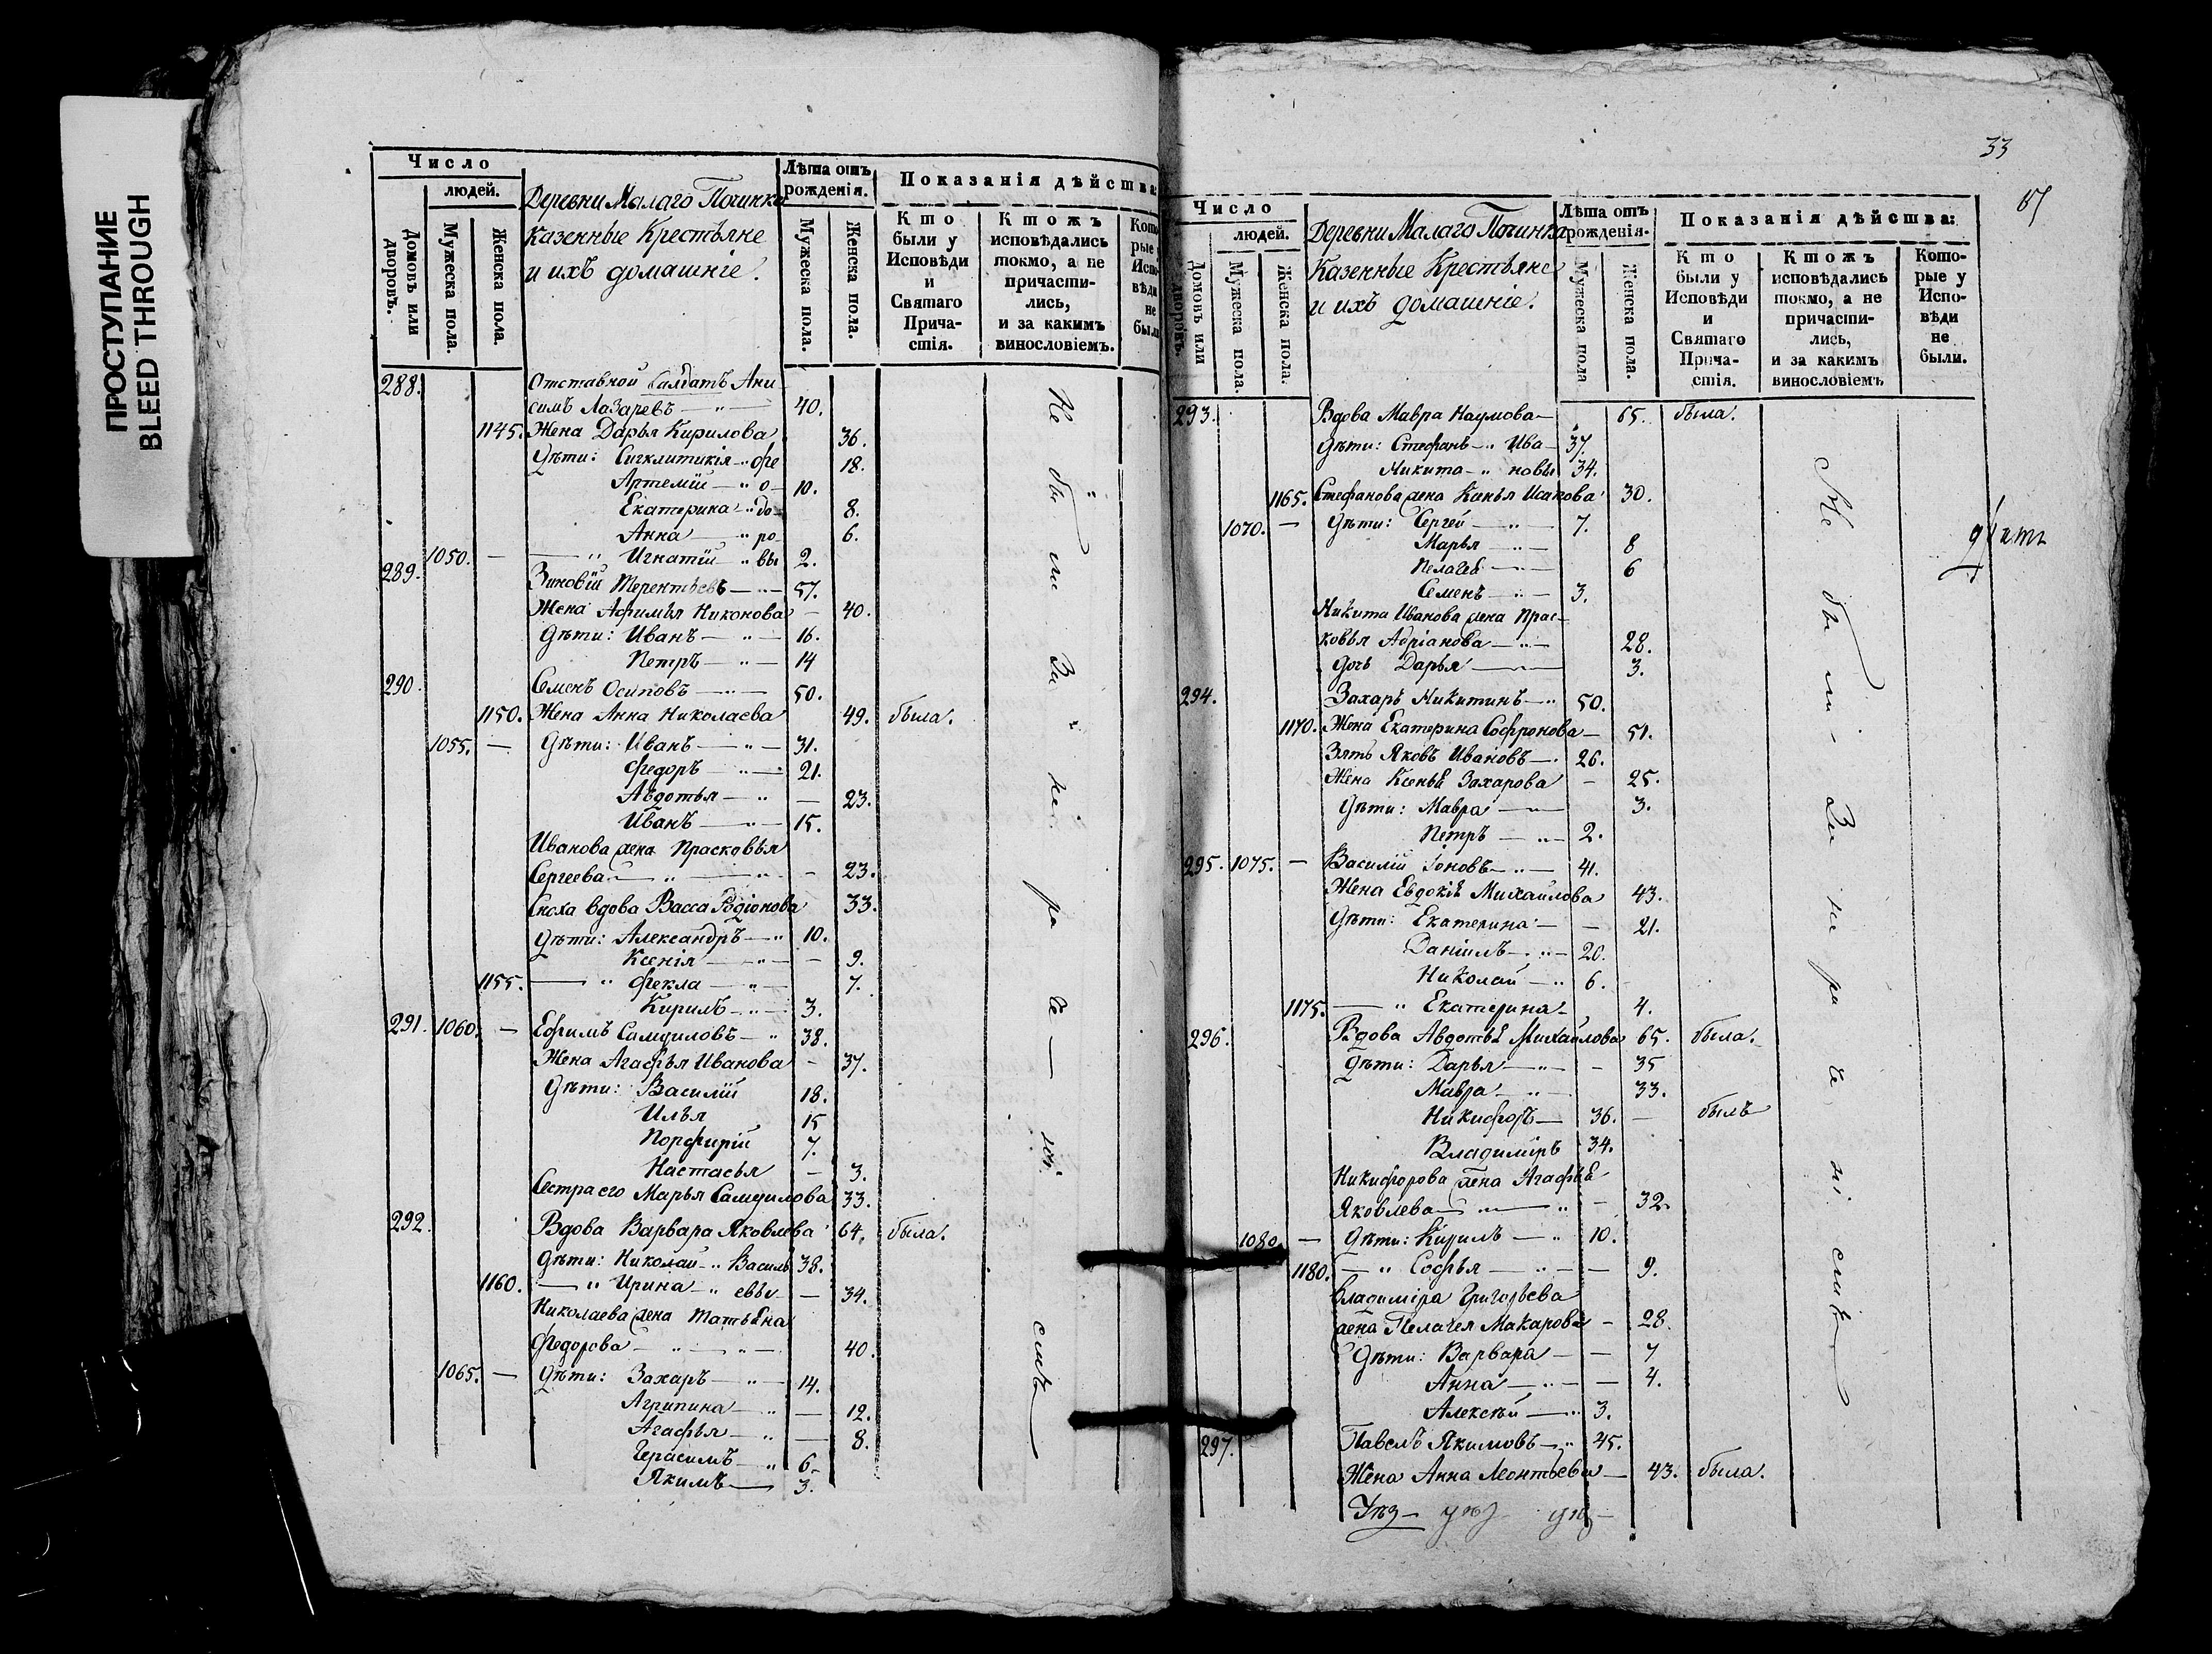 ПРОСТУПАНИЕ
BLEED THROUGH
Число
людей.
Домовъ или дворовъ.
Мужеска пола.
Женска пола.
Деревни Малаго Починка
Казенные Крестьяне
и ихъ домашніе.
Лѣта отъ рожденія.
Мужеска пола.
Женска пола.
Показанія дѣйства:
Кто были у Исповѣди и Святаго Причастія.
Ктожъ исповѣдались токмо, а не причастились, и за какимъ винословіемъ.
Которые у Исповѣди не были
288. Отставной Салдатъ Ани
симъ Лазаревъ 40.
1145. Жена Дарья Кирилова 36.
Дѣти: Сигклитикія Ѳе 18.
Артемій о 10.
Екатерина до 8.
Анна ро 6.
1050. — Игнатій вы 2.
289. Зиновій Терентьевъ 57.
Жена Афимья Никонова 40.
Дѣти: Иванъ 16.
Петръ 14
290. Семенъ Осиповъ 50.
1150. Жена Анна Николаева 49. была.
1055. — Дѣти: Иванъ 31.
Федоръ 21.
Авдотья — 23.
Иванъ 15.
Иванова жена Прасковья
Сергеева — 23.
Сноха вдова Васса Родіонова 33.
Дѣти: Александръ 10.
Ксенія — 9.
1155. Фекла 7.
Кирилъ 3.
291. 1060. — Ефимъ Самуиловъ 38.
Жена Агафья Иванова — 37.
Дѣти: Василій 18.
Илья 15
Порфирій 7.
Настасья — 3.
Сестра его Марья Самуилова 33.
292. Вдова Варвара Яковлева 64. была.
Дѣти: Николай Василь 38.
1160. Ирина евы — 34.
Николаева жена Татьяна
Федорова 40.
1065. — Дѣти: Захаръ 14.
Агрипина — 12.
Агафья — 8.
Герасимъ 6.
Якимъ 3.
Не были
33
Число
людей.
Домовъ или дворовъ.
Мужеска пола.
Женска пола.
Деревни Малаго Починка
Казенные Крестьяне
и ихъ домашніе.
Лѣта отъ рожденія.
Мужеска пола
Женска пола.
Показанія дѣйства:
Кто были у Исповѣди и Святаго Причастія.
Ктожъ исповѣдались токмо, а не причастились, и за какимъ винословіемъ
Которые у Исповѣди не были.
293. Вдова Мавра Наумова 65. была.
Дѣти: Стефанъ Ива 37.
Никита новы 34.
1165. Стефанова жена Исакова 30.
1070. — Дѣти: Сергей 7.
Марья 8
Пелагея 6
Семенъ 3.
Никита Иванова жена Прас-
ковья Адріанова 28.
дочь Дарья 3.
294. Захаръ Никитинъ 50.
1170. Жена Екатерина Софронова 51.
Зять Яковъ Ивановъ 26.
Жена Ксенья Захарова — 25.
Дѣти: Мавра 3.
Петръ 2.
295. 1075. — Василій Іоновъ 41.
Жена Евдокія Михайлова 43.
Дѣти: Екатерина — 21.
Даніилъ 20.
Николай 6.
1175. Екатерина 4.
296. Вдова Авдотья Михайлова 65. была.
Дѣти: Дарья — 35
Мавра 33.
Никифоръ 36. — былъ
Владиміръ 34.
Никифорова жена Агафья
Яковлева — 32.
1080. — Дѣти: Кирилъ 10.
1180. Софья — 9.
Владиміра Григорьева
жена Пелагея Макарова — 28.
Дѣти: Варвара — 7
Анна — 4.
Алексѣй 3.
297. Павелъ Якимовъ 45.
Жена Анна Леонтьева — 43. была.
Не были